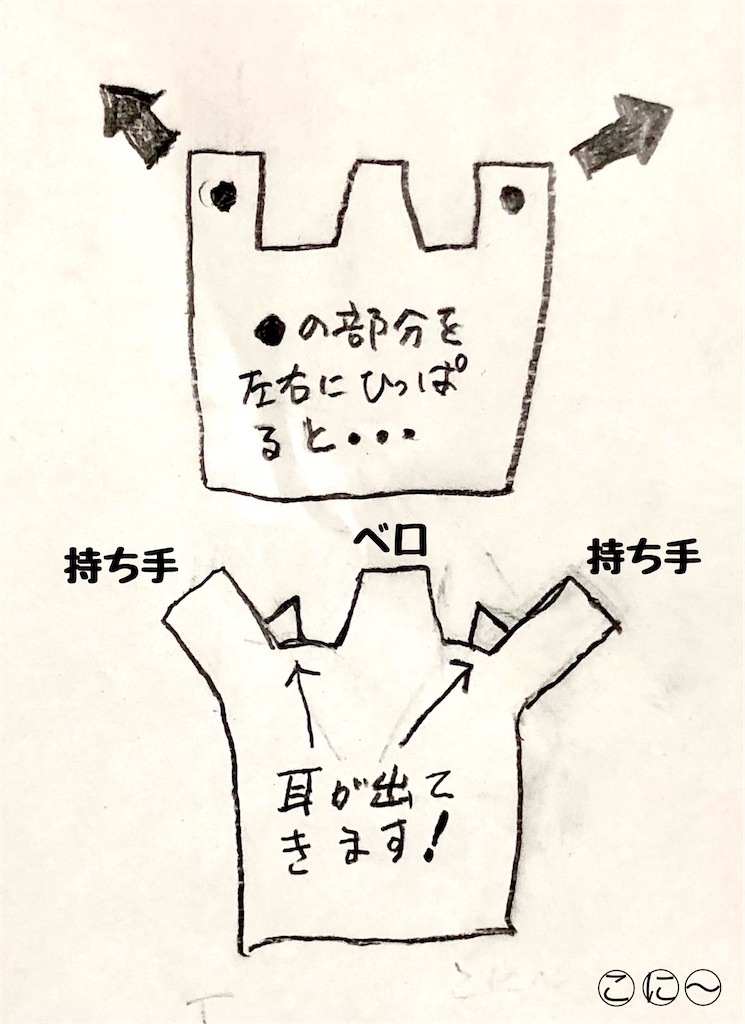 ●の部分を
左右にひっぱ
ると・・・
持ち手
ベロ
持ち手
耳が出て
きます!
こに〜